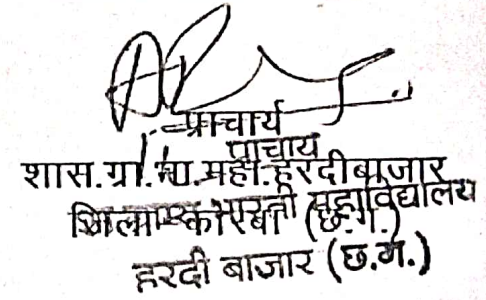 प्राचार्य
प्राचार्य
शास.ग्रा.भा.महा.हरदीबाजार
जिला कोरबा (छ.ग.) महाविद्यालय
हरदी बाजार (छ.ग.)